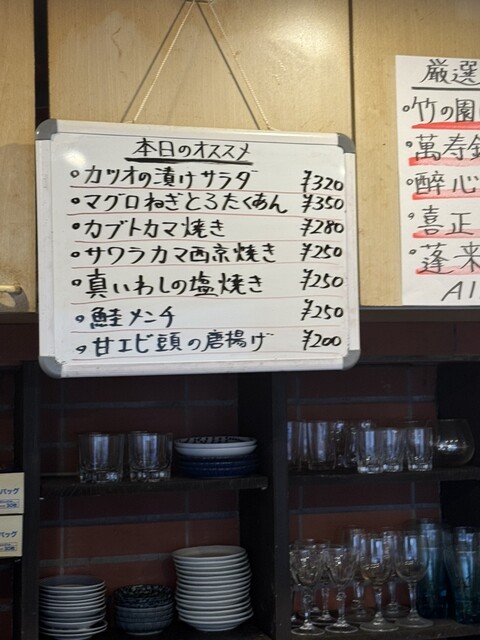 本日のオススメ
・カツオの漬けサラダ ¥320
・マグロねぎとろたくあん ¥350
・カブトカマ焼き ¥280
・サワラカマ西京焼き ¥250
・真いわしの塩焼き ¥250
・鮭メンチ ¥250
・甘エビ頭の唐揚げ ¥200
厳選
・竹の園
・萬寿
・酔心
・喜正
・蓬来
バッグ
バッグ